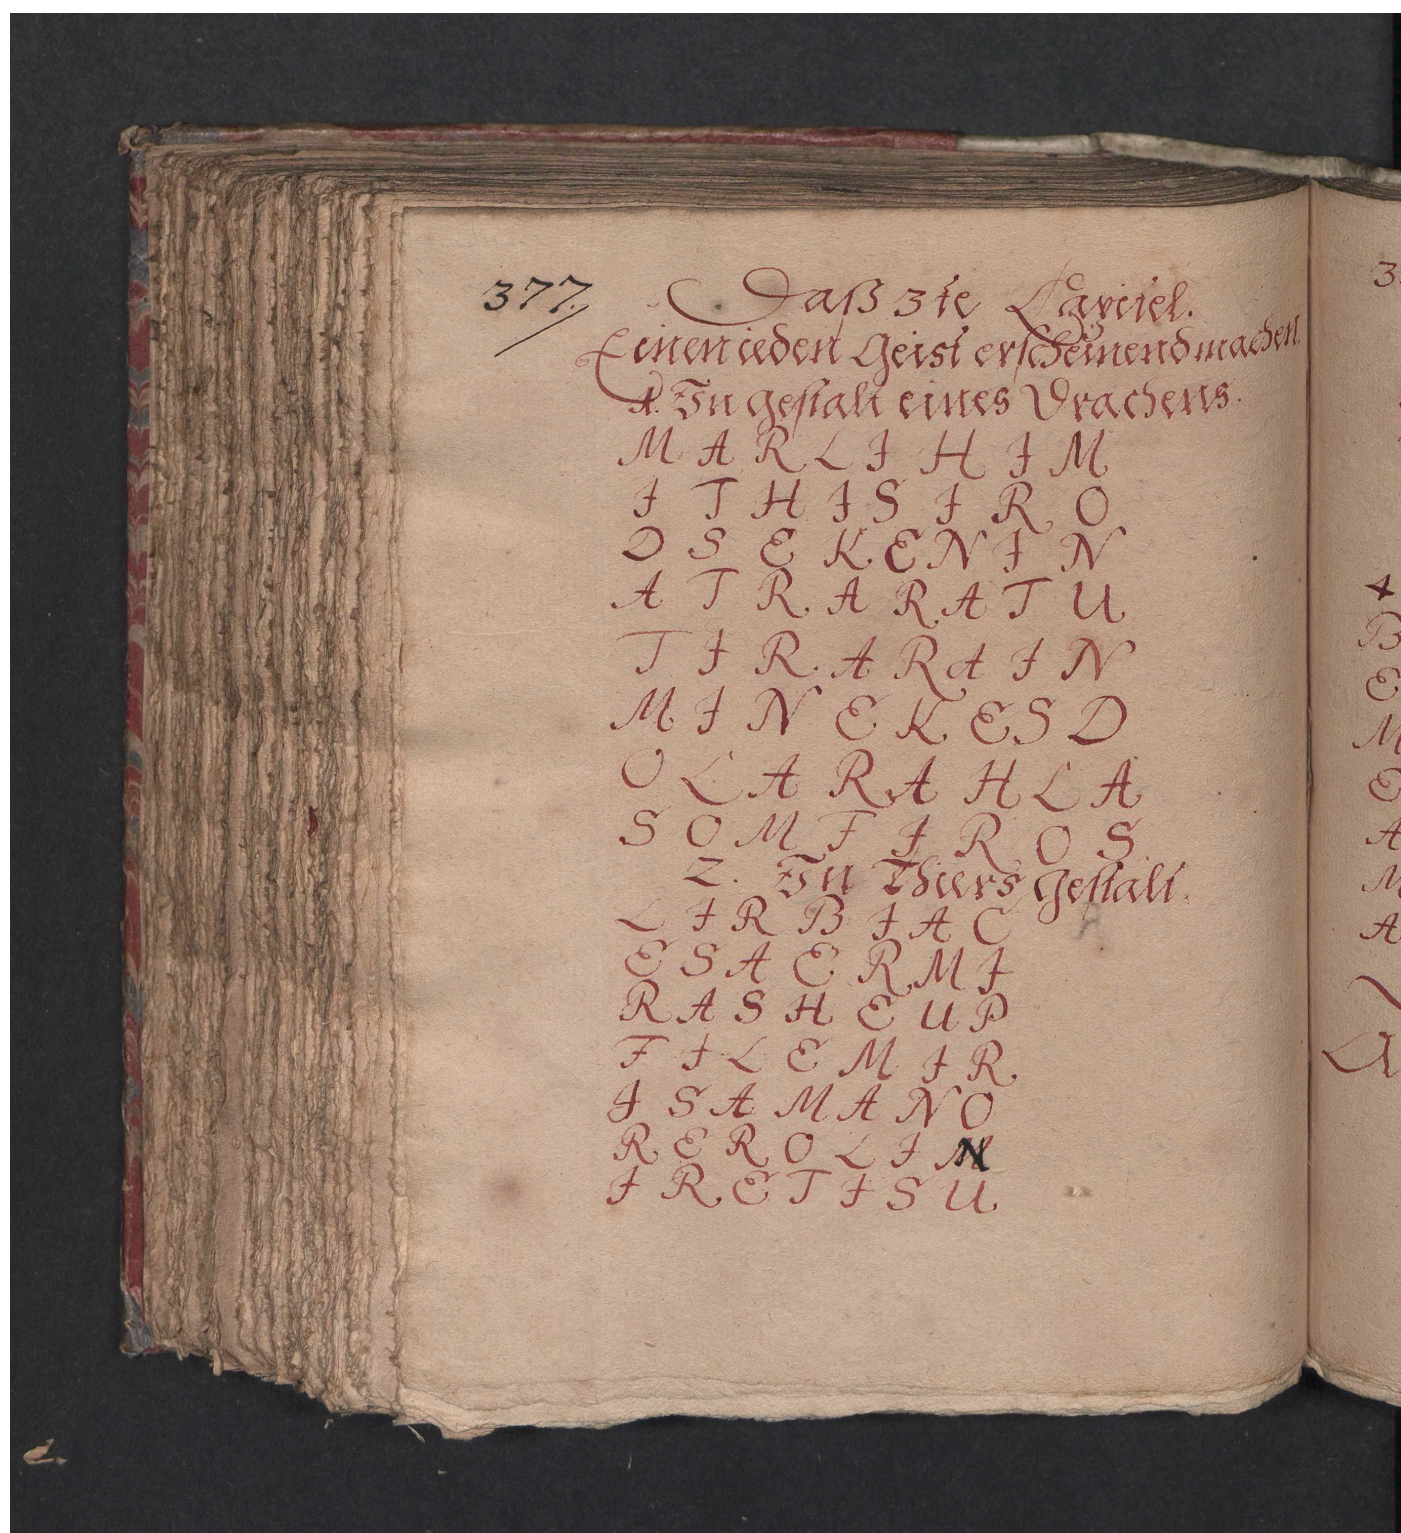 377.
Daß 3te Capitel.
Einen ieden Geist erscheinend machen
1. In gestalt eines Drachens.
M A R L I H I M
I T H I S I R O
D S E K E N I N
A T R A R A T U
T I R A R A I N
M I N E K E S D
O L A R A H L A
S O M F I R O S
2. In Thiers gestalt.
L I R B I A C
E S A E R M I
R A S H E U P
F I L E M I R
I S A M A N O
R E R O L I N
I R E T I S U
3
4
B
E
M
E
A
M
A